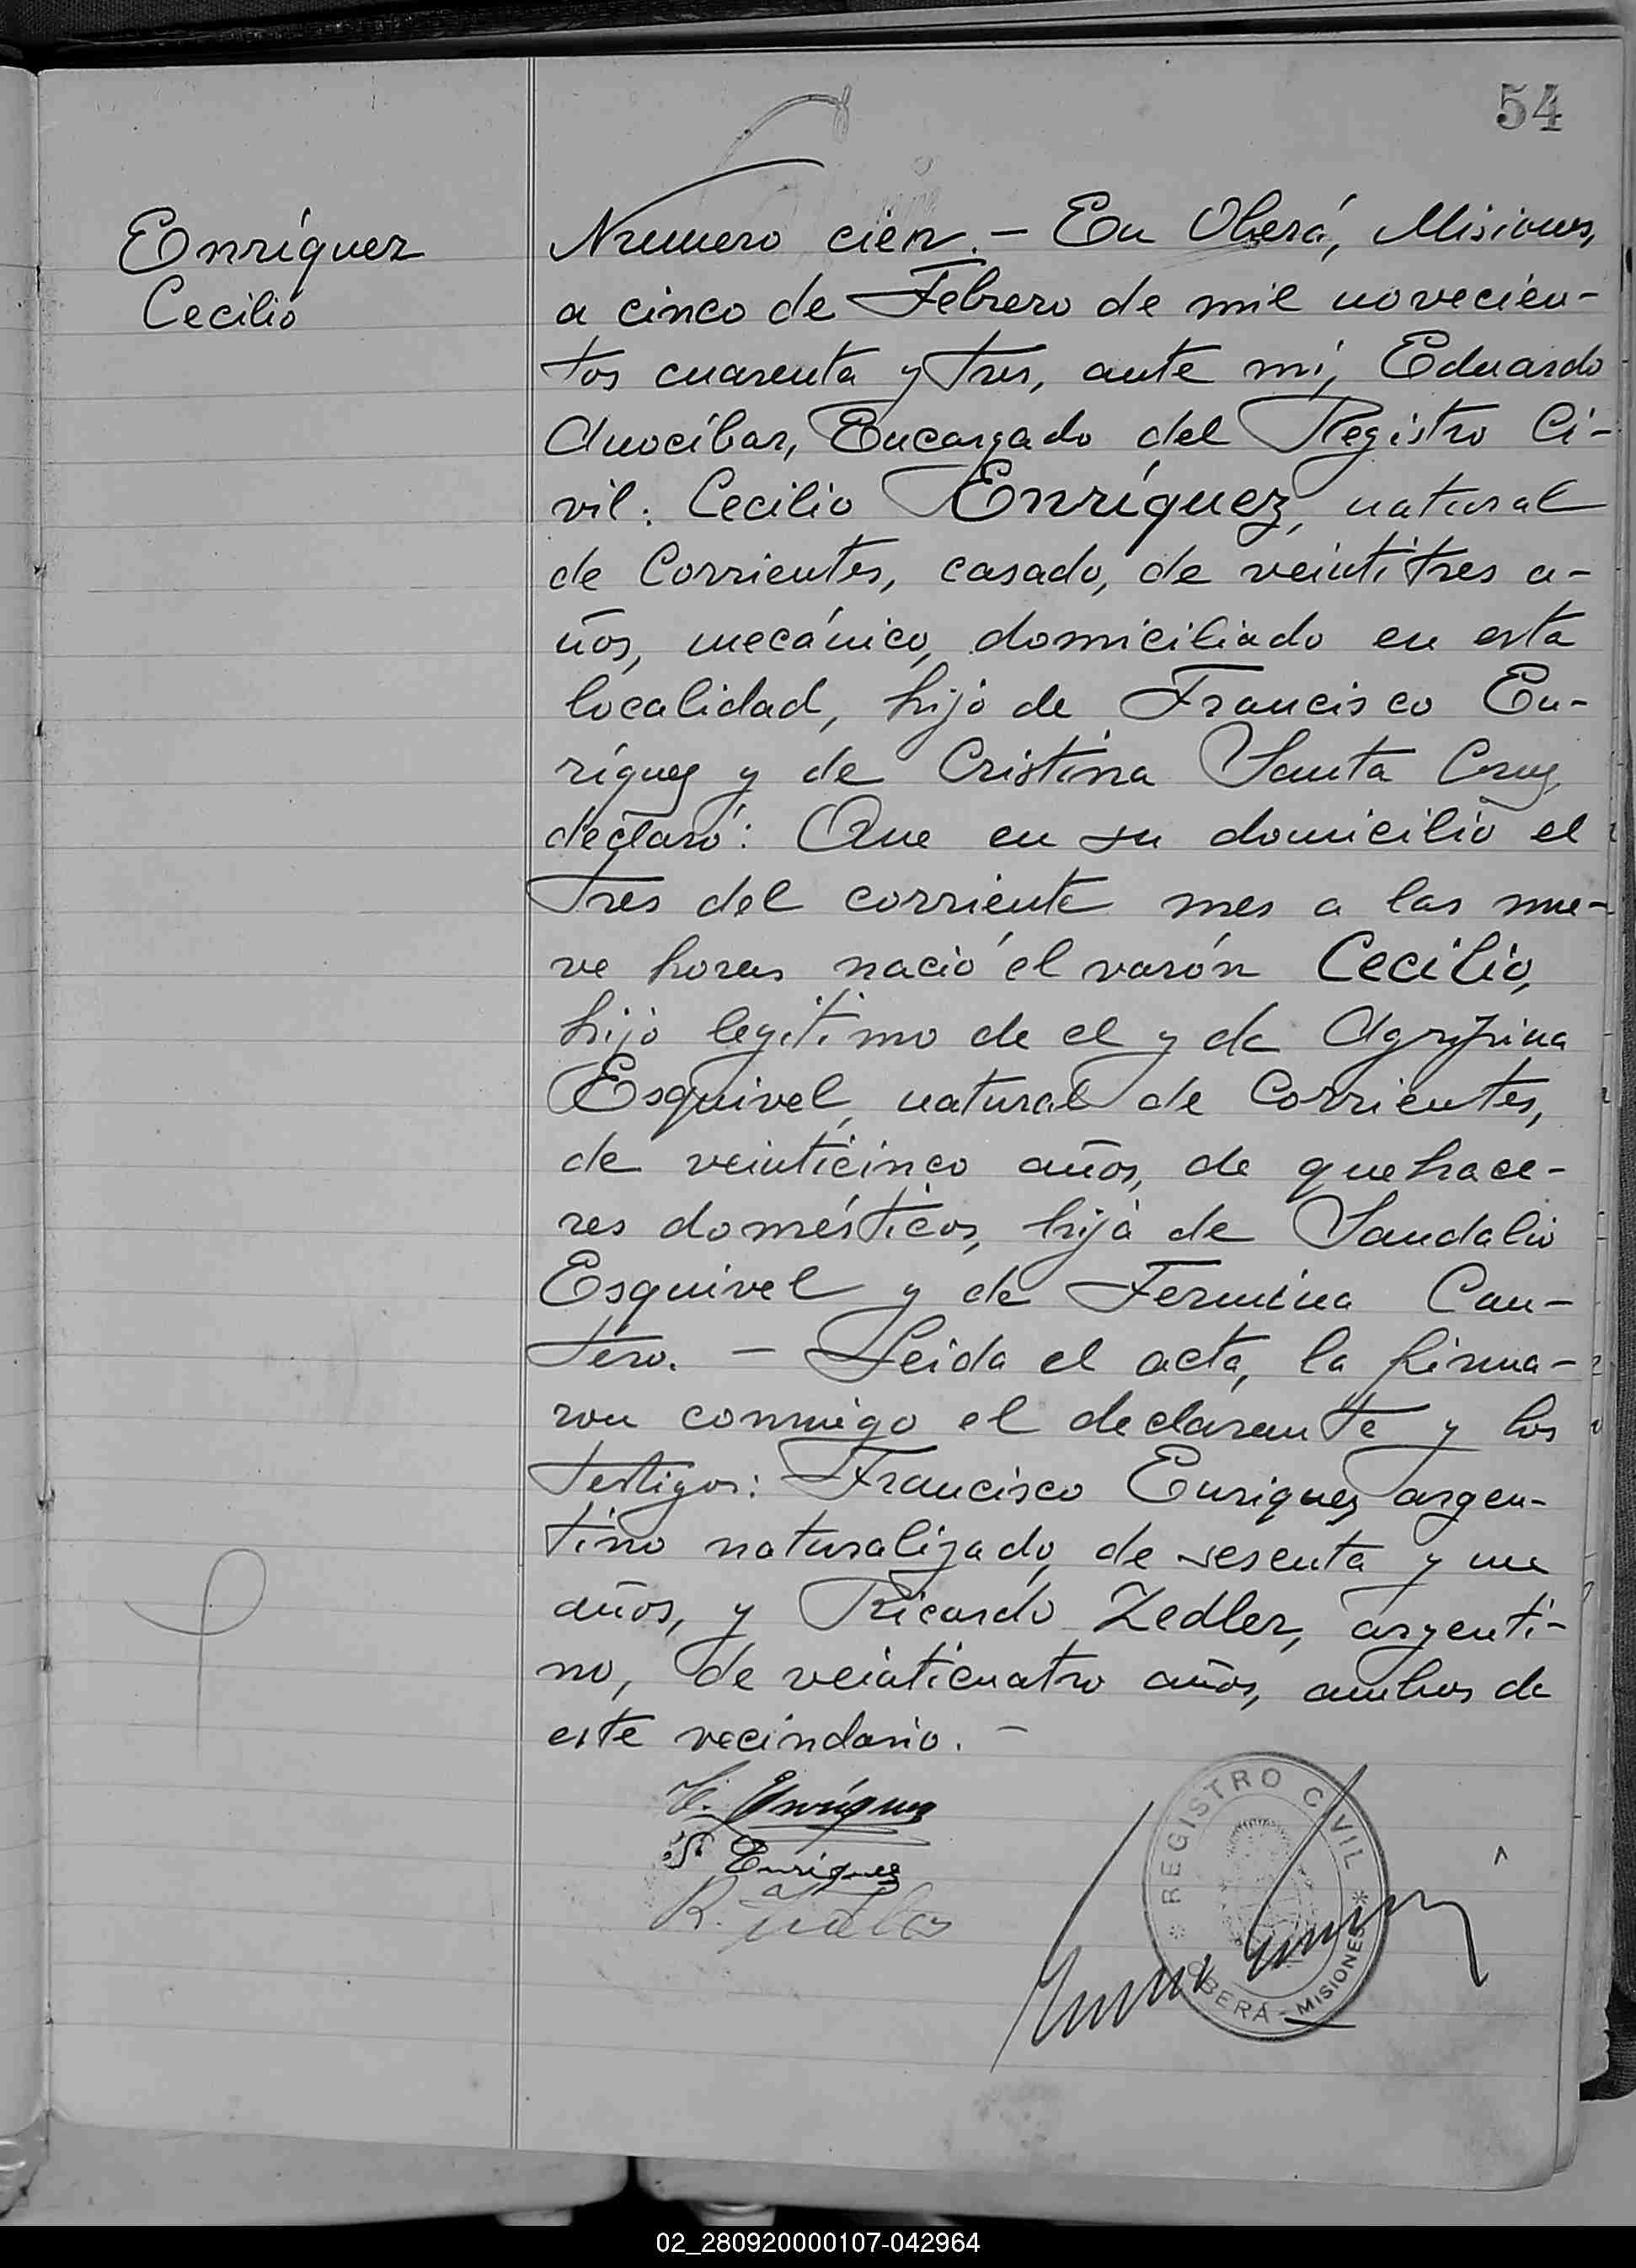 54
Enríquez
Cecilio
Numero cien. — En Oberá, Misiones,
a cinco de Febrero de mil novecien-
tos cuarenta y tres, ante mí, Eduardo
Anocíbar, Encargado del Registro Ci-
vil: Cecilio Enríquez, natural
de Corrientes, casado, de veintitres a-
ños, mecánico, domiciliado en esta
localidad, hijo de Francisco En-
ríquez y de Cristina Santa Cruz,
declaró: Que en su domicilio el
tres del corriente mes a las nue-
ve horas nació el varón Cecilio,
hijo legítimo de el y de Agripina
Esquivel, natural de Corrientes,
de veinticinco años, de quehace-
res domésticos, hija de Sandalio
Esquivel y de Fermina Can-
tero. — Leida el acta, la firma-
ron conmigo el declarante y los
testigos: Francisco Enriquez, argen-
tino naturalizado, de sesenta y un
años, y Ricardo Zedler, argenti-
no, de veinticuatro años, ambos de
este vecindario. —
C. Enríquez
Enriquez
R. Zedler
REGISTRO CIVIL
OBERÁ - MISIONES
02_280920000107-042964